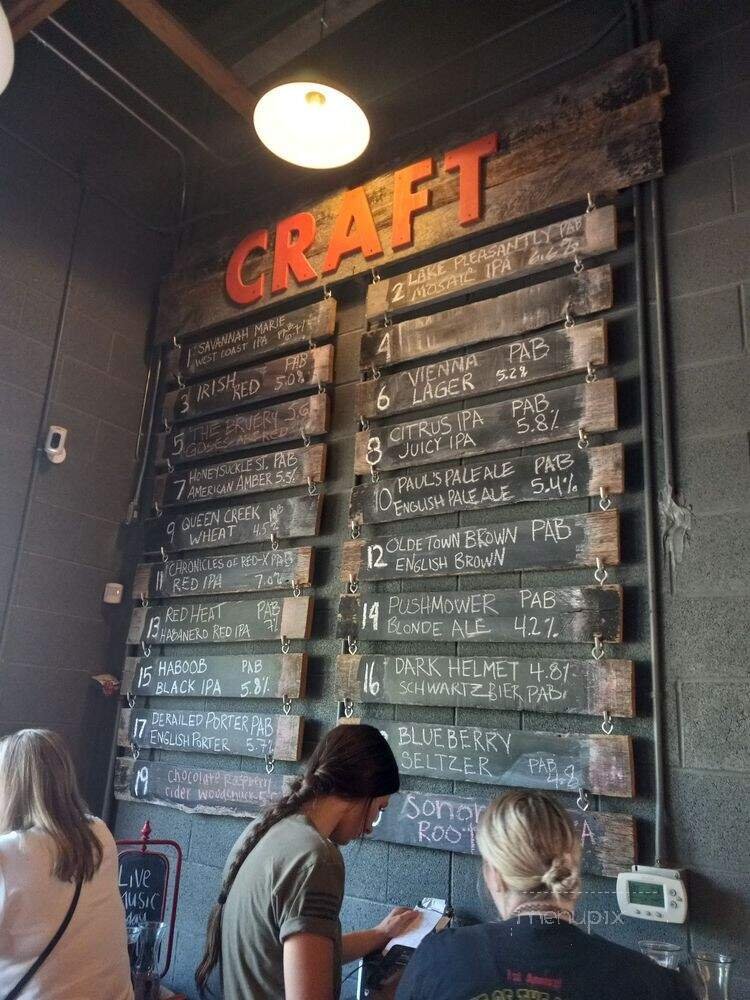 CRAFT
1 SAVANNAH MARIE
WEST COAST IPA PAB
3 IRISH RED PAB 5.0%
5 THE BRUERY
7 HONEYSUCKLE ST. PAB
AMERICAN AMBER 5.5%
9 QUEEN CREEK PAB
WHEAT 4.5%
11 CHRONICLES OF RED-X PAB
RED IPA 7.0%
13 RED HEAT PAB
HABANERO RED IPA 7%
15 HABOOB PAB
BLACK IPA 5.8%
17 DERAILED PORTER PAB
ENGLISH PORTER 5.7%
19 Chocolate Raspberry
cider Woodchuck
2 LAKE PLEASANTLY PAB
MOSAIC IPA 6.2%
4
6 VIENNA PAB
LAGER 5.2%
8 CITRUS IPA PAB
JUICY IPA 5.8%
10 PAUL'S PALE ALE PAB
ENGLISH PALE ALE 5.4%
12 OLDE TOWN BROWN PAB
ENGLISH BROWN
14 PUSHMOWER PAB
BLONDE ALE 4.2%
16 DARK HELMET 4.8%
SCHWARTZBIER PAB
BLUEBERRY
SELTZER PAB 4.8
Sonor
Root
LIVE
MUSIC
day
menupix